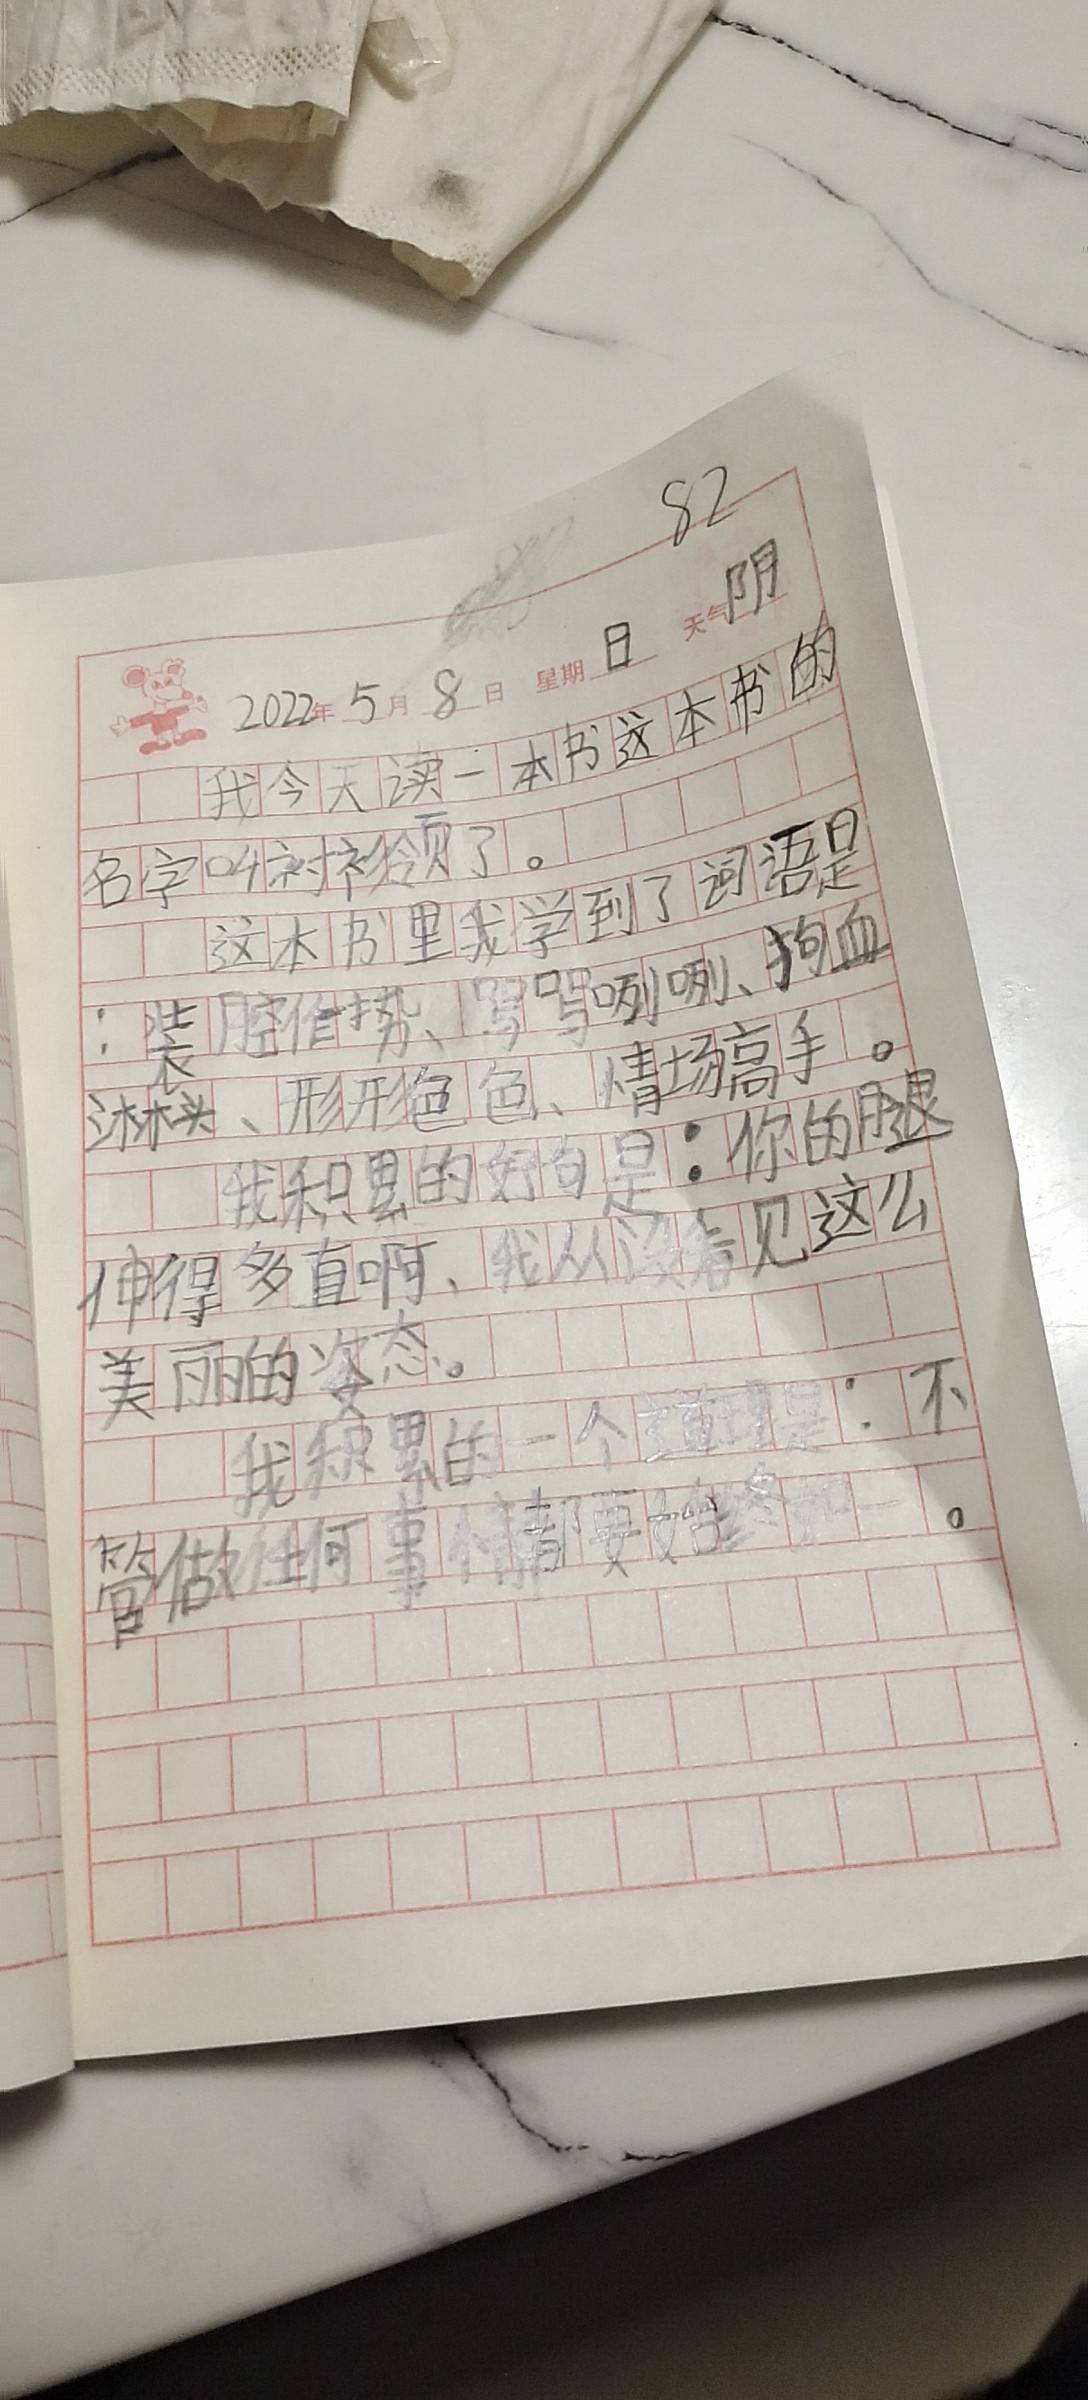 82
2022年5月8日 星期日 天气阴
我今天读一本书这本书的
名字叫衬衫领了。
这本书里我学到了词语是
:装腔作势、骂骂咧咧、狗血
淋林头、形形色色、情场高手。
我积累的好句是:你的腿
伸得多直啊、我从没看见这么
美丽的姿态。
我积累的一个道理是:不
管做任何事情都要始终如一。